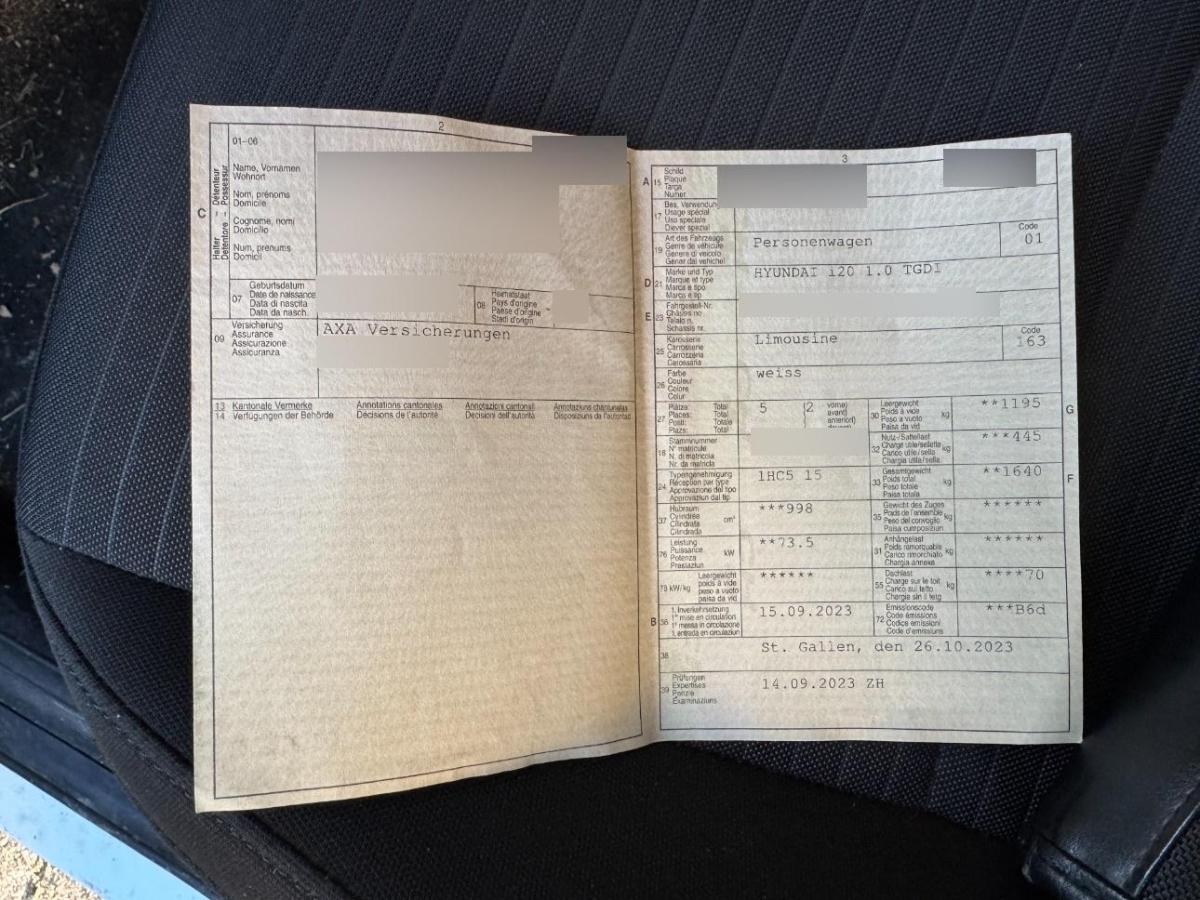 2
01-06
Halter
Détenteur
Detentore
Possessur
C
Name, Vornamen
Wohnort
Nom, prénoms
Domicile
Cognome, nomi
Domicilio
Num, prenums
Domicil
07
Geburtsdatum
Date de naissance
Data di nascita
Data da nasch.
08
Heimatstaat
Pays d'origine
Paese d'origine
Stadi d'origin
09
Versicherung
Assurance
Assicurazione
Assicuranza
AXA Versicherungen
13 Kantonale Vermerke Annotations cantonales Annotazioni cantonali Annotaziuns chantunalas
14 Verfügungen der Behörde Décisions de l'autorité Decisioni dell'autorità Disposiziuns da l'autoritad
3
A 15
Schild
Plaque
Targa
Numer
17
Bes. Verwendung
Usage spécial
Uso speciale
Diever spezial
19
Art des Fahrzeugs
Genre de véhicule
Genere di veicolo
Gener dal vehichel
Personenwagen
Code
01
D 21
Marke und Typ
Marque et type
Marca e tipo
Marca e tip
HYUNDAI i20 1.0 TGDI
E 23
Fahrgestell-Nr.
Châssis no
Telaio n.
Schassis nr.
25
Karosserie
Carrosserie
Carrozzeria
Carossaria
Limousine
Code
163
26
Farbe
Couleur
Colore
Colur
weiss
27
Plätze: Total
Places: Total
Posti: Totale
Plazs: Total
5 (2
vorne)
avant)
anteriori)
30
Leergewicht
Poids à vide
Peso a vuoto
Paisa da vid
kg
**1195
G
18
Stammnummer
N° matricule
N. di matricola
Nr. da matricla
32
Nutz-/Sattellast
Charge utile/sellette
Carico utile/sella
Chargia utila/sella
kg
***445
24
Typengenehmigung
Réception par type
Approvazione del tipo
Approvaziun dal tip
1HC5 15
33
Gesamtgewicht
Poids total
Peso totale
Paisa totala
kg
**1640
F
37
Hubraum
Cylindrée
Cilindrata
Cilindrada
cm³
***998
35
Gewicht des Zuges
Poids de l'ensemble
Peso del convoglio
Paisa cumposiziun
kg
******
76
Leistung
Puissance
Potenza
Prestaziun
kW
**73.5
31
Anhängelast
Poids remorquable
Carico rimorchiato
Chargia annexa
kg
******
78 kW/kg
Leergewicht
poids à vide
peso a vuoto
paisa da vid
******
55
Dachlast
Charge sur le toit
Carico sul tetto
Chargia sin il tetg
kg
****70
B 36
1. Inverkehrsetzung
1re mise en circulation
1a messa in circolazione
1. entrada en circulaziun
15.09.2023
72
Emissionscode
Code émissions
Codice emissioni
Code d'emissiuns
***B6d
38
St. Gallen, den 26.10.2023
39
Prüfungen
Expertises
Perizie
Examinaziuns
14.09.2023 ZH